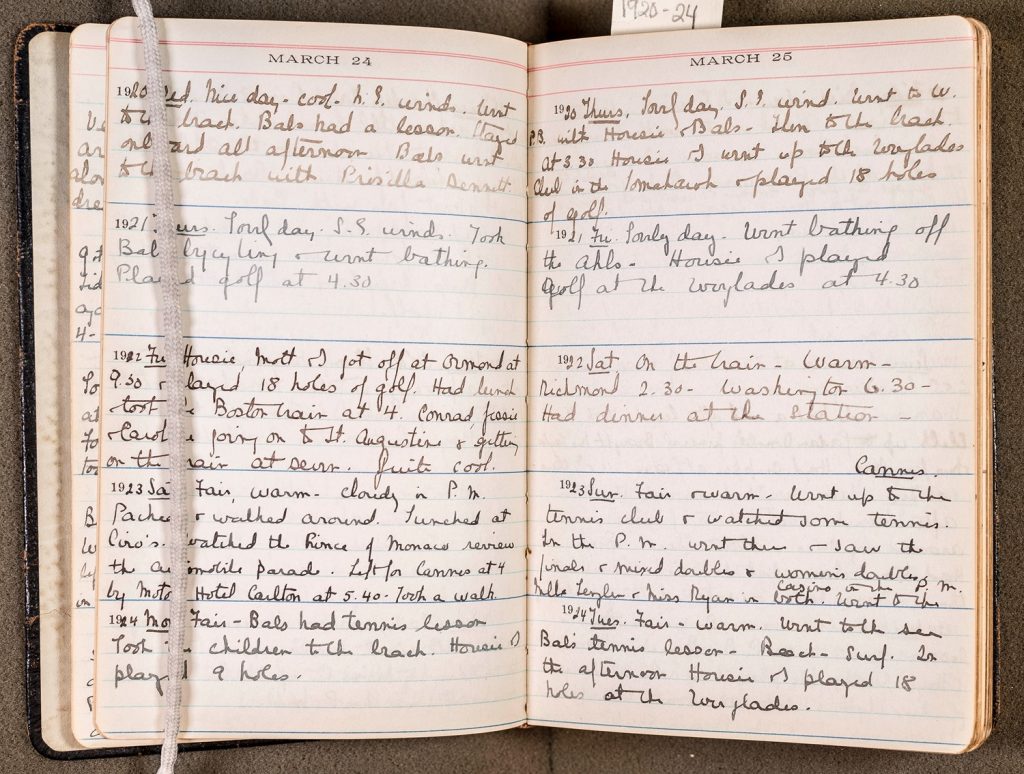 1920-24
MARCH 24
1920 Wed. Nice day - cool - N. E. winds. Went
to the beach. Bals had a lesson. Stayed
onboard all afternoon Bals went
to the beach with Priscilla Bennett
1921 Thurs. Lovely day. S. E. winds. Took
Bals bycycling & went bathing.
Played golf at 4.30
1922 Fri Housie, Mott & I got off at Ormond at
9.30 & played 18 holes of golf. Had lunch
& took the Boston train at 4. Conrad, Jessie
& Caroline going on to St. Augustine & getting
on the train at seven. Quite cool.
1923 Sat Fair, warm - cloudy in P. M.
Packed & walked around. Lunched at
Ciro's. Watched the Prince of Monaco review
the Automobile Parade. Left for Cannes at 4
by Motor Hotel Carlton at 5.40 - Took a walk
1924 Mon Fair - Bals had tennis lesson
Took the children to the beach. Housie & I
played 9 holes.
MARCH 25
1920 Thurs. Lovely day. S. E. wind. Went to W.
P.B. with Housie & Bals - Then to the beach.
At 3 30 Housie & I went up to the Everglades
Club in the Tomahawk & played 18 holes
of golf.
1921 Fri. Lovely day. Went bathing off
the Ahls - Housie & I played
golf at the Everglades at 4.30
1922 Sat On the train - Warm -
Richmond 2.30 - Washington 6.30 -
Had dinner at the station -
Cannes.
1923 Sun. Fair & warm - Went up to the
tennis club & watched some tennis.
In the P. M. went there & saw the
finals & mixed doubles & women's doubles
Mlle Lenglen & Miss Ryan in both. Went to the
Casino in the P. M.
1924 Tues. Fair - warm. Went to the see
Bals tennis lesson - Beach - Surf. In
the afternoon Housie & I played 18
holes at the Everglades.